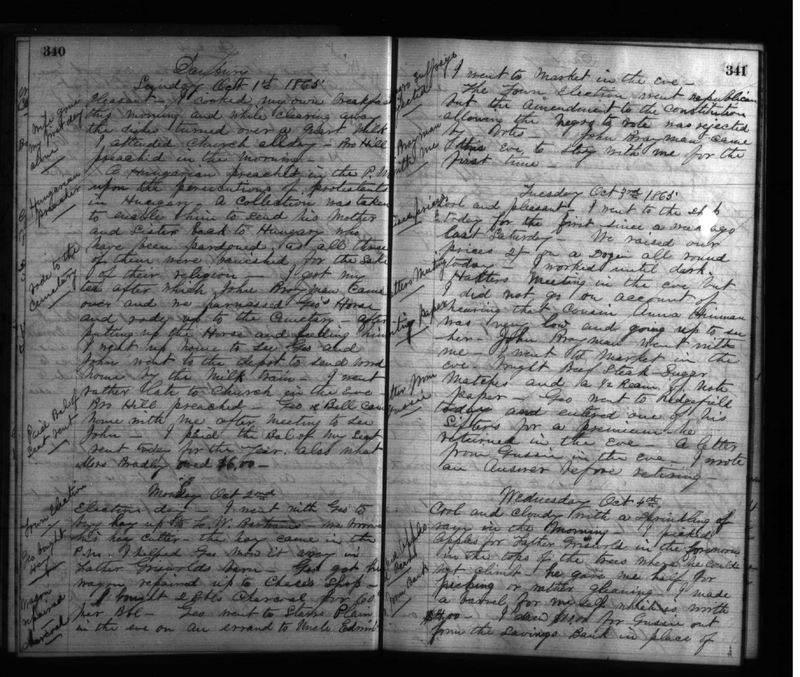 340
Danbury
Sunday Oct 1st 1865
Pleasant - I cooked my own breakfast
this morning and while clearing away
the dishes turned over a Quart Milk
I attended Church all day - Bro Hill
preached in the morning
A Hungarian preached in the P.M
upon the persecutions of protestants
in Hungary. A Collection was taken
to enable him to send his Mother
and Sister back to Hungary who
have been pardoned, as all three
of them were banished for the sake
of their religion - I got my
tea after which John Brayman came
over and we harnessed Geo's Horse
and rode up to the Cemetery after
putting up the Horse and feeding him
I went up home to see Geo and
John went to the depot to send word
home by the Milk train - I went
rather late to Church in the Eve
Bro Hill preached - Geo & Bell came
home with me after meeting to see
John - I paid the Bal of my Seat
rent today for the year. also what
Mrs Bradley owed $6.00 -
Monday Oct 2nd
Election day - I went with Geo to
buy hay up to L. W. Bartrams - we borrowed
his key cutter - the hay came in the
P.M. I helped Geo Mow it away in
Father Griswolds Barn - Geo got his
wagon repaired up to Chase's Shop -
I bought 2 Bbls Charcoal for 60
per Bbl - Geo went to Starrs Plain
in the eve on an errand to Uncle Edwin
Wife gone
my first day
alone
Hungarian
preacher
rode to the
Cemetery
Paid Bal of
Seat rent
Town Election
Geo bought
Hay
Wagon
repaired
Charcoal
341
I went to Market in the eve -
The Town Election went republican
but the Amendment to the constitution
allowing the Negro to vote was rejected
by Votes - John Brayman came
this Eve to stay with me for the
first time -
Tuesday Oct 3rd 1865
Cool and pleasant I went to the Shop
today for the first since a week ago
last Saturday - We raised our
prices $1 on a Dozen all round
today - I worked until dark.
Hatters Meeting in the eve, but
I did not go on account of
hearing that Cousin Anna
was very low and going up to see
her - John Brayman went with
me - I went to Market in the
eve - bought Beef Steak - Sugar
Matches and a ½ Ream of Note
Paper - Geo went to Ridgefield
today and entered one of his
Sifters for a premium he
returned in the Eve - A letter
from Gussie in the eve - I wrote
an Answer before retiring -
Wednesday Oct 4th
Cool and cloudy with a Sprinkling of
rain in the Morning - I picked
apples for Father Griswold in the forenoon
in the tops of the trees where he could
not climb - he gave me half for
picking or rather gleaning. I made
a barrel for myself which is worth
$4.00 - I drew for Gussie out
from the Savings Bank in place of
Brayman
with me